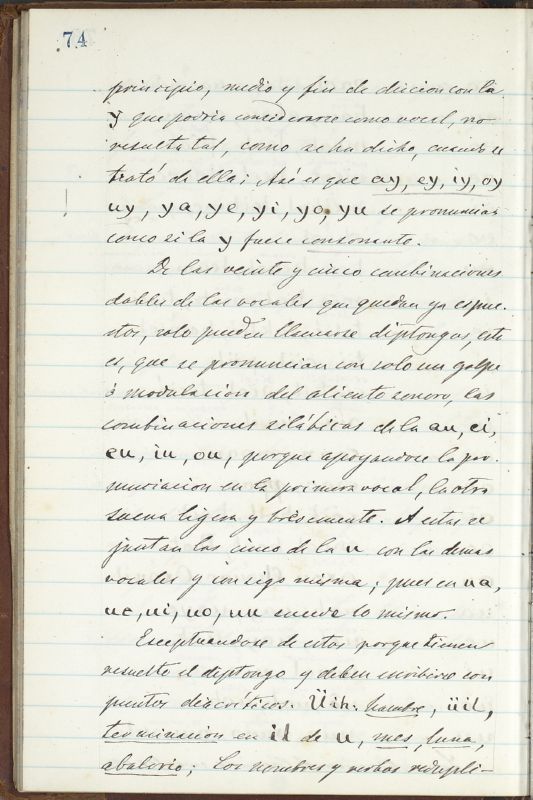 74
principio, medio y fin de diccion con la
y que podria considerarse como vocal, no
resulta tal, como se ha dicho, cuando se
trató de ella; Así es que ay, ey, iy, oy
uy, ya, ye, yi, yo, yu se pronuncian
como si la y fuese consonante.
De las veinte y cinco combinaciones
dobles de las vocales que quedan ya espues-
tas, solo pueden llamarse diptongos, esto
es, que se pronuncian con solo un golpe
ó modulacion del aliento sonoro, las
combinaciones silábicas de la au, ei,
eu, iu, ou, porque apoyandose la pro-
nunciacion en la primera vocal, la otra
suena ligera y brevemente. A estas se
juntan las cinco de la u con las demas
vocales y consigo misma; pues en ua,
ue, ui, uo, uu sucede lo mismo.
Esceptuandose de estas porque tienen
resuelto el diptongo y deben escribirse con
puntos diacríticos. Üih: hambre, üil,
terminacion en il de u, mes, luna,
abalorio; Los nombres y verbos redupli-